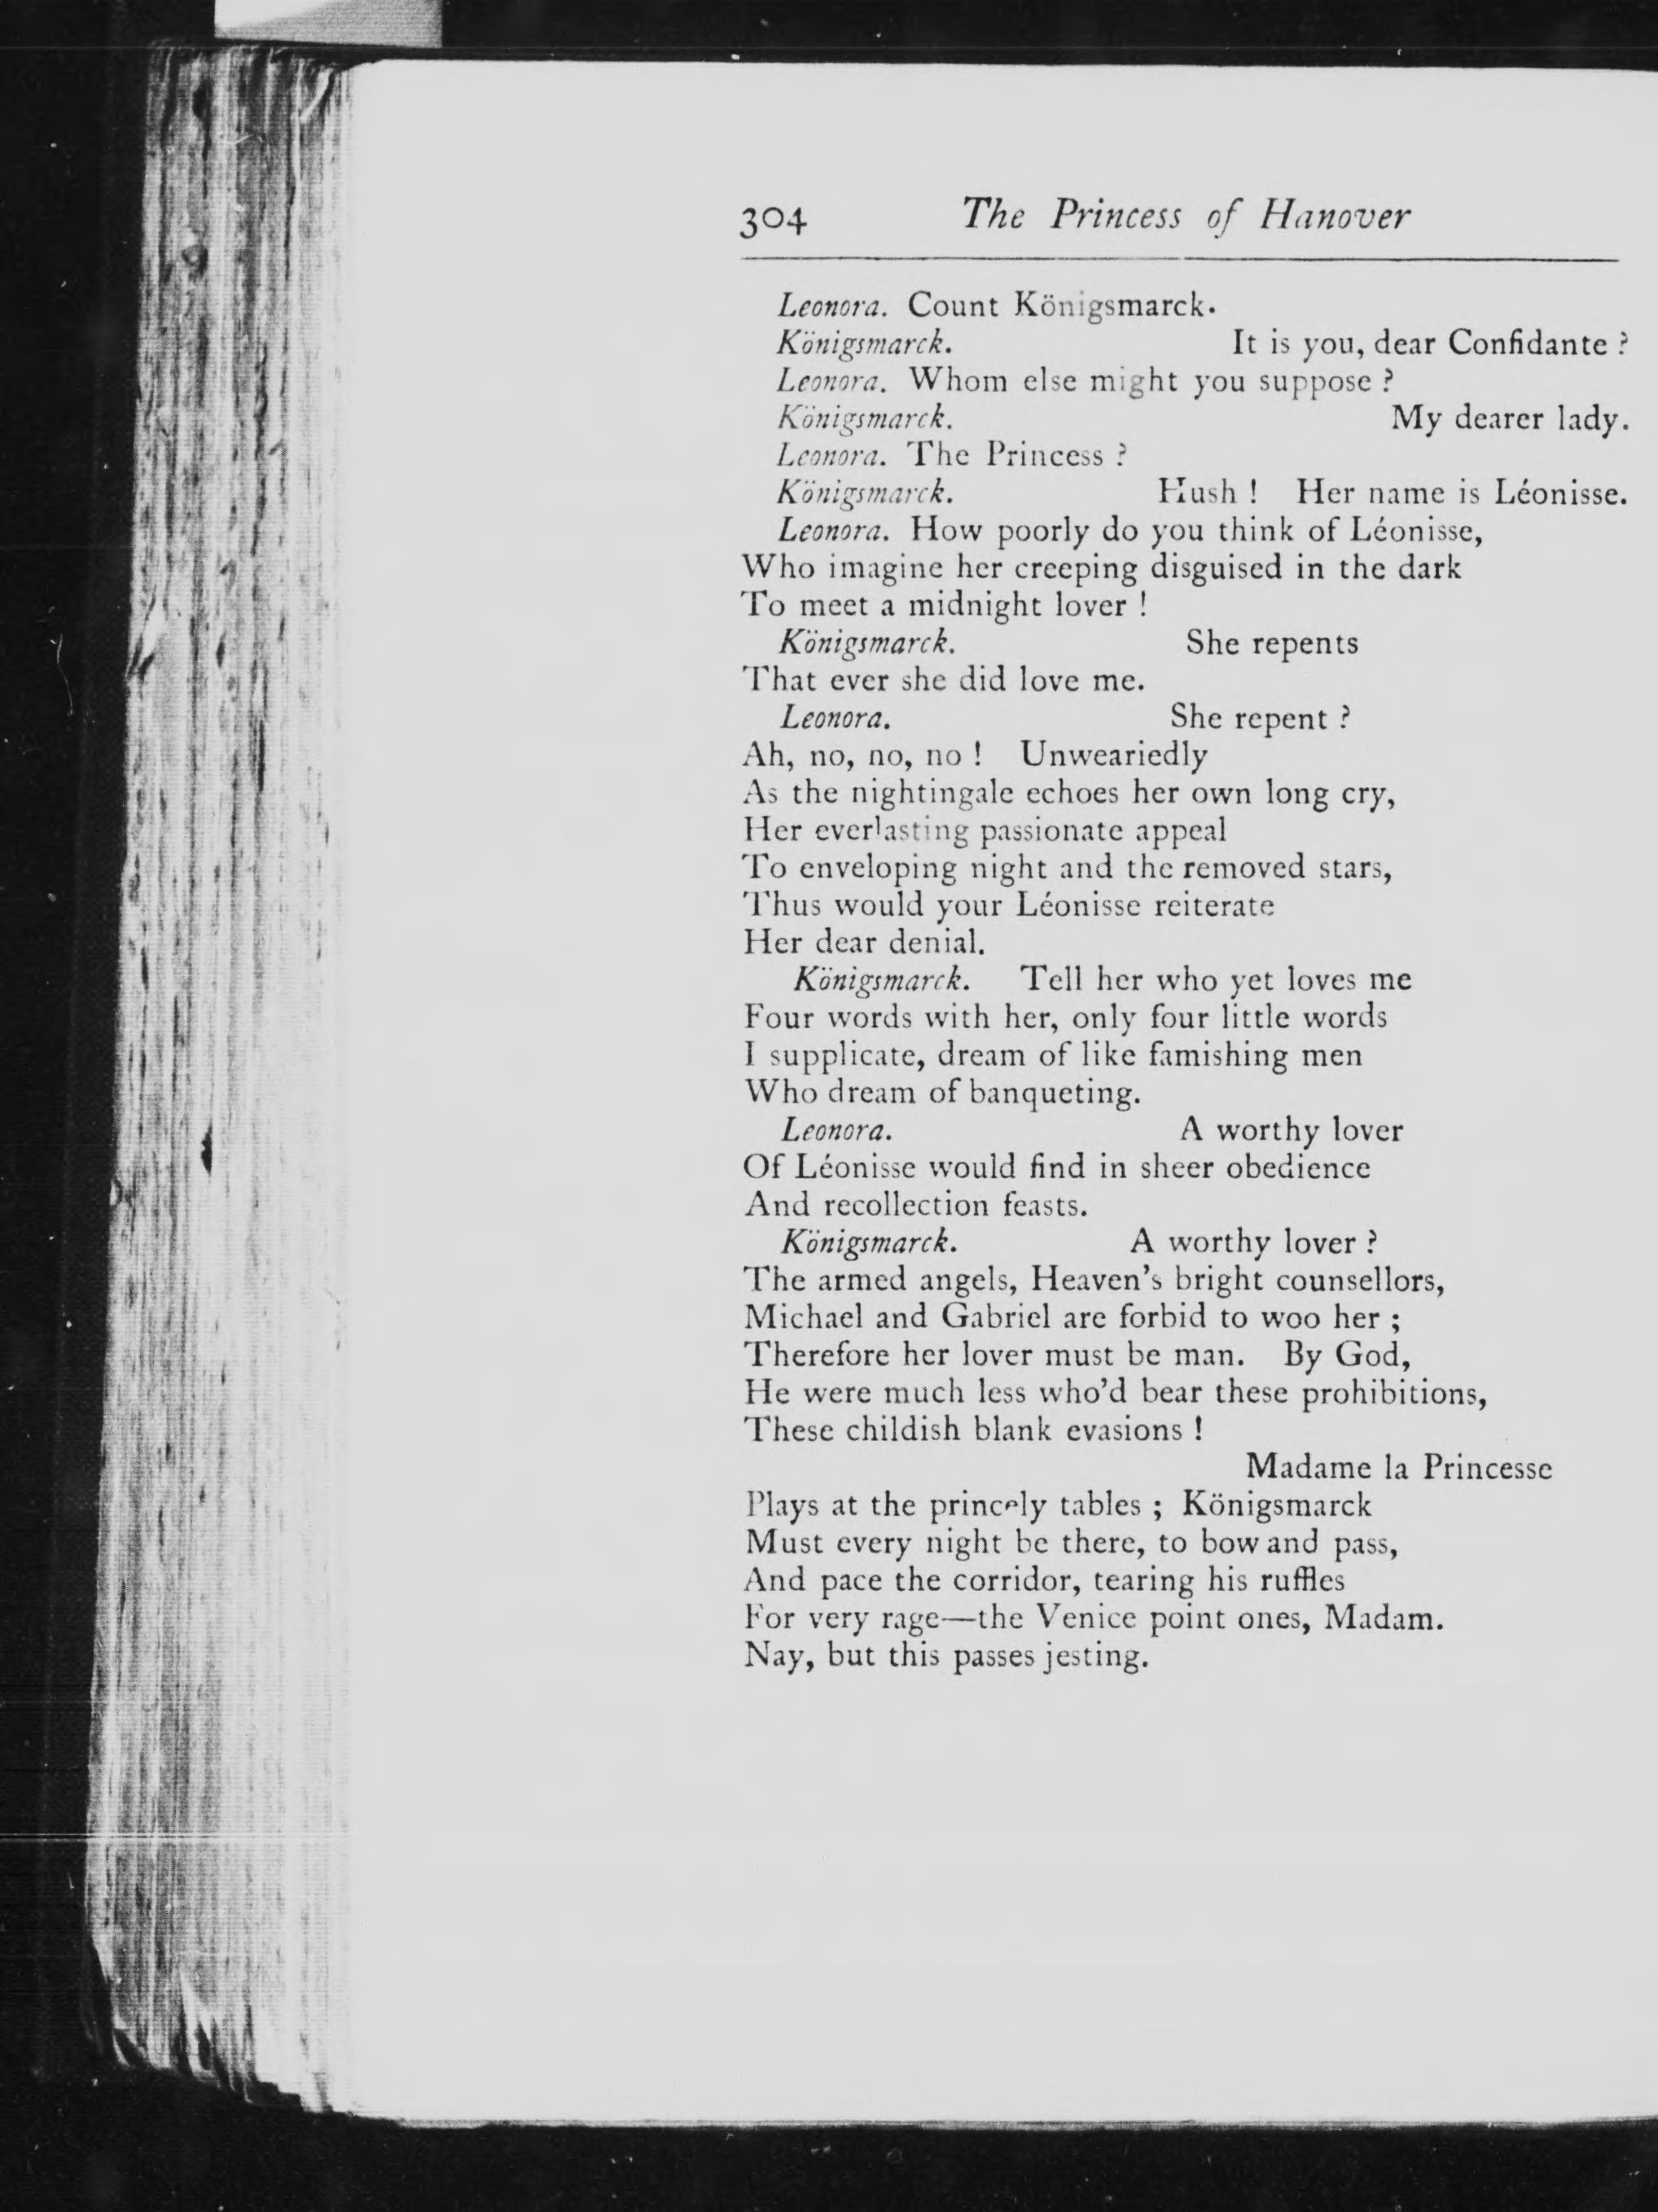 304 The Princess of Hanover
Leonora. Count Königsmarck.
Königsmarck. It is you, dear Confidante ?
Leonora. Whom else might you suppose ?
Königsmarck. My dearer lady.
Leonora. The Princess ?
Königsmarck. Hush ! Her name is Léonisse.
Leonora. How poorly do you think of Léonisse,
Who imagine her creeping disguised in the dark
To meet a midnight lover !
Königsmarck. She repents
That ever she did love me.
Leonora. She repent ?
Ah, no, no, no ! Unweariedly
As the nightingale echoes her own long cry,
Her everlasting passionate appeal
To enveloping night and the removed stars,
Thus would your Léonisse reiterate
Her dear denial.
Königsmarck. Tell her who yet loves me
Four words with her, only four little words
I supplicate, dream of like famishing men
Who dream of banqueting.
Leonora. A worthy lover
Of Léonisse would find in sheer obedience
And recollection feasts.
Königsmarck. A worthy lover ?
The armed angels, Heaven's bright counsellors,
Michael and Gabriel are forbid to woo her ;
Therefore her lover must be man. By God,
He were much less who'd bear these prohibitions,
These childish blank evasions !
Madame la Princesse
Plays at the princely tables ; Königsmarck
Must every night be there, to bow and pass,
And pace the corridor, tearing his ruffles
For very rage—the Venice point ones, Madam.
Nay, but this passes jesting.